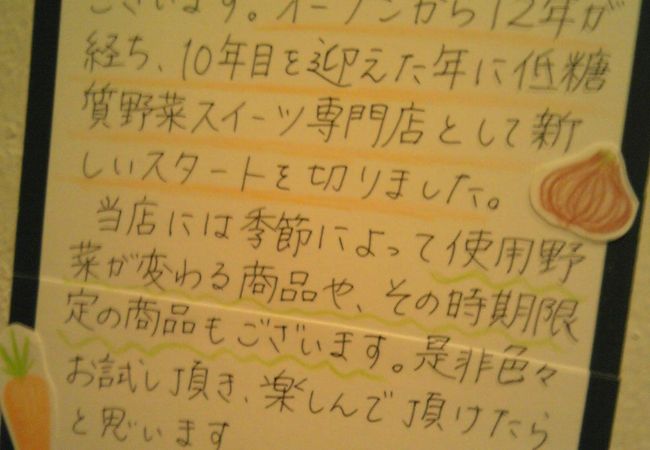 ございます。オープンから12年が
経ち、10年目を迎えた年に低糖
質野菜スイーツ専門店として新
しいスタートを切りました。
当店には季節によって使用野
菜が変わる商品や、その時期限
定の商品もございます。是非色々
お試し頂き、楽しんで頂けたら
と思います